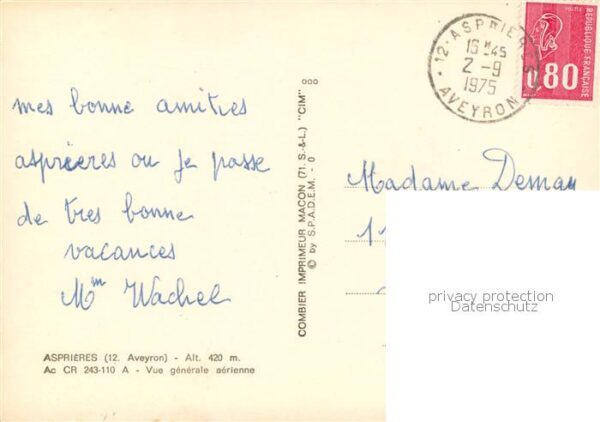 mes bonne amitres
asprieres ou je passe
de tres bonne
vacances
Mm Wachel
ASPRIÈRES (12. Aveyron) - Alt. 420 m.
Ac CR 243-110 A - Vue générale aérienne
COMBIER IMPRIMEUR MACON (71. S.-&-L.) "CIM"
© by S.P.A.D.E.M. - 0
12 - ASPRIERES
16H45
2 - 9
1975
AVEYRON
0.80
REPUBLIQUE FRANÇAISE
Madame Demay
11
privacy protection
Datenschutz